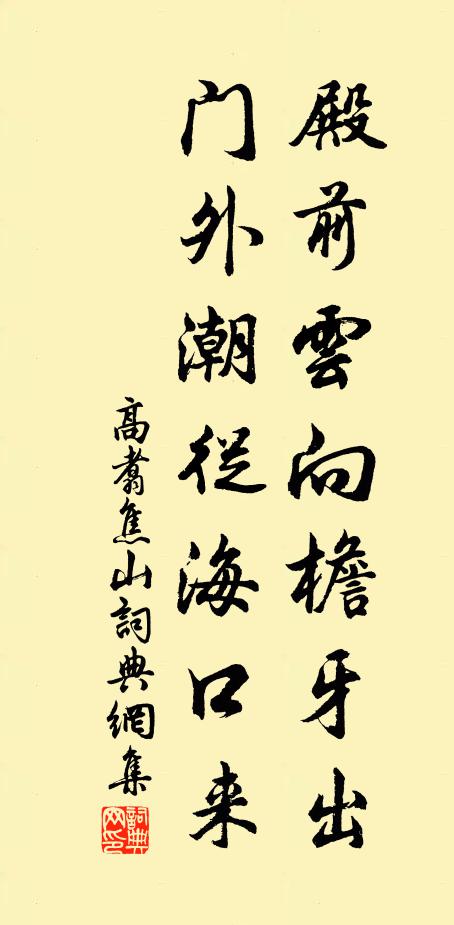 殿前雲向檐牙出
門外潮從海口来
高翥焦山詞典網集
詞典網印